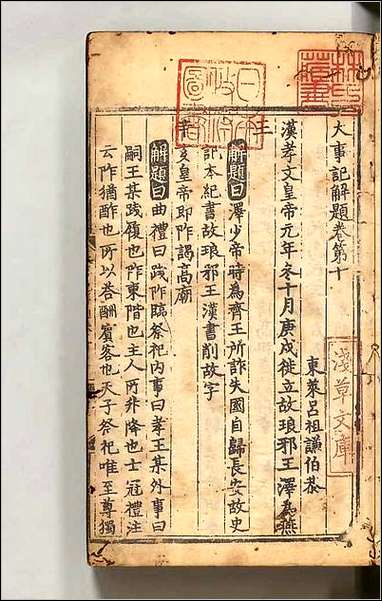 大事記解題卷第十
東萊呂祖謙伯恭
漢孝文皇帝元年冬十月庚戌徙立故琅邪王澤為燕
王
解題曰澤少帝時為齊王所詐失國自歸長安故史
記本紀書故琅邪王漢書削故字
辛亥皇帝即阼謁高廟
解題曰曲禮曰踐阼臨祭祀内事曰孝王某外事曰
嗣王某踐履也阼東階也主人所升降也士冠禮注
云阼猶酢也所以荅酬賓客也天子祭祀唯至尊獨
淺草文庫